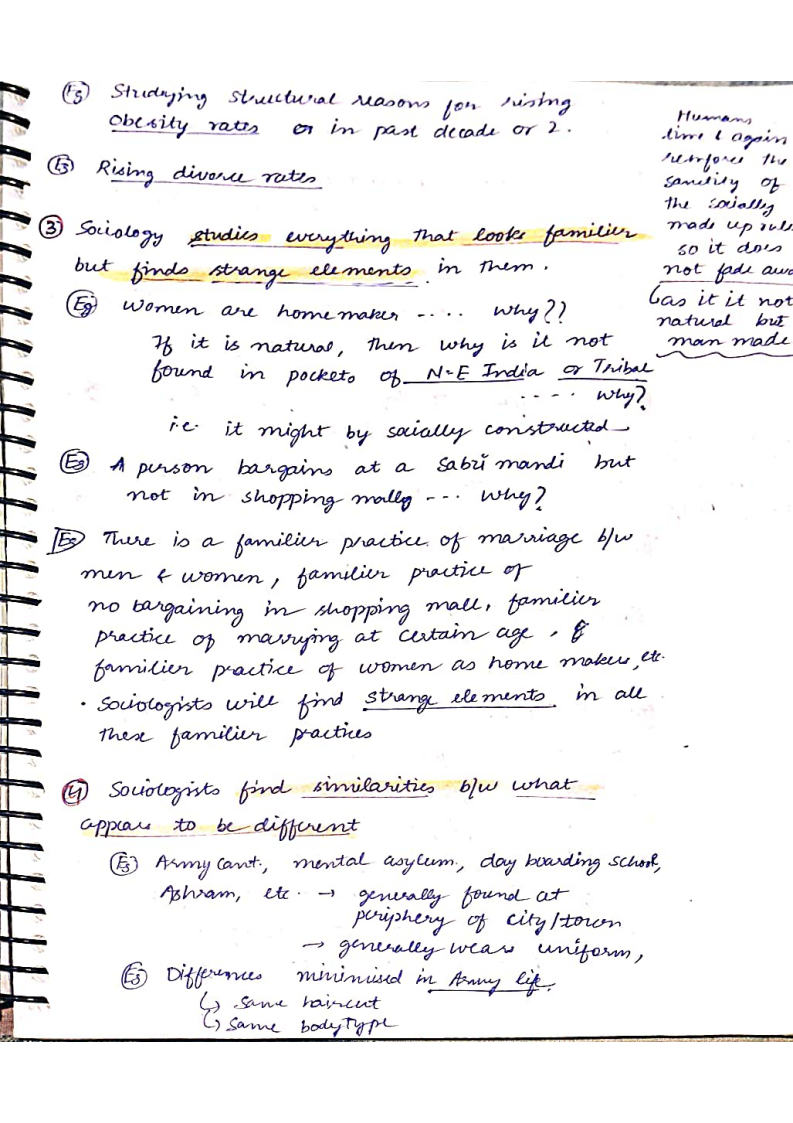 Eg Studying structural reasons for rising
obesity rates or in past decade or 2.
Eg Rising divorce rates
3 Sociology studies everything that looks familier
but finds strange elements in them.
Eg Women are homemaker -.... why??
If it is natural, then why is it not
found in pockets of N-E India or Tribal
.... why?
i.e. it might by socially constructed
Eg A person bargains at a Sabzi mandi but
not in shopping malls --- why?
Eg There is a familier practice of marriage b/w
men & women, familier practice of
no bargaining in shopping mall, familier
practice of marrying at certain age, &
familier practice of women as home makers, etc.
• Sociologists will find strange elements in all
these familier practices
4 Sociologists find similarities b/w what
appears to be different
Eg Army Cant., mental asylum, day boarding school,
Ashram, etc. → generally found at
periphery of city/town
→ generally wears uniform,
Eg Differences minimised in Army life.
↳ same haircut
↳ same bodytype
Humans
time & again
reinforce the
sanctity of
the socially
made up
so it does
not fade
(as it it not
natural but
man made